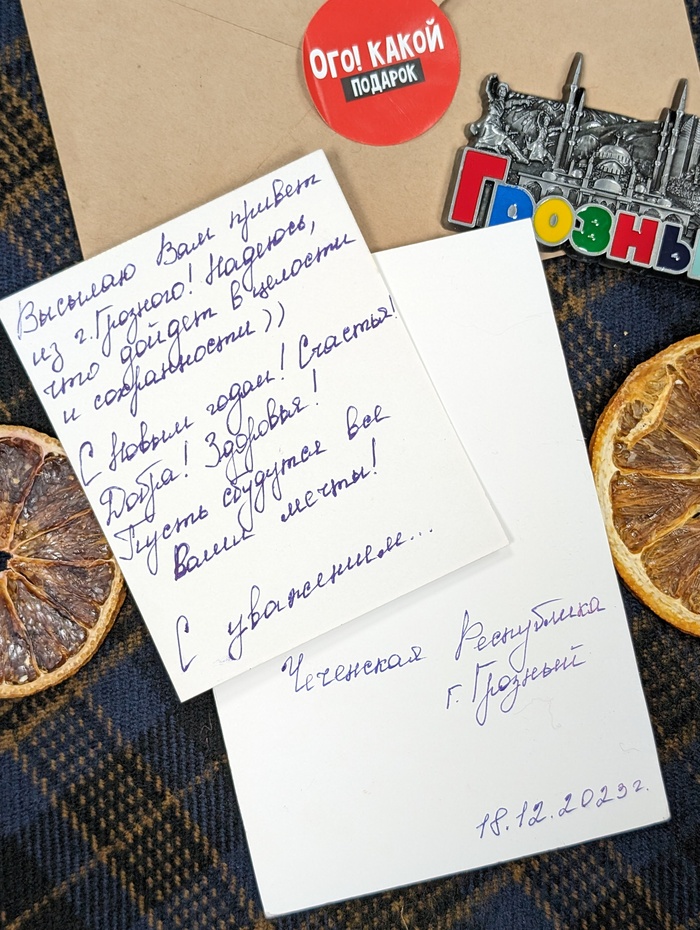 ОГО! КАКОЙ
ПОДАРОК
ГРОЗНЫ
Высылаю Вам привет
из г. Грозного! Надеюсь,
что дойдет в целости
и сохранности))
С Новым годом! Счастья!
Добра! Здоровья!
Пусть сбудутся все
Ваши мечты!
С уважением...
Чеченская Республика
г. Грозный
18.12.2023г.